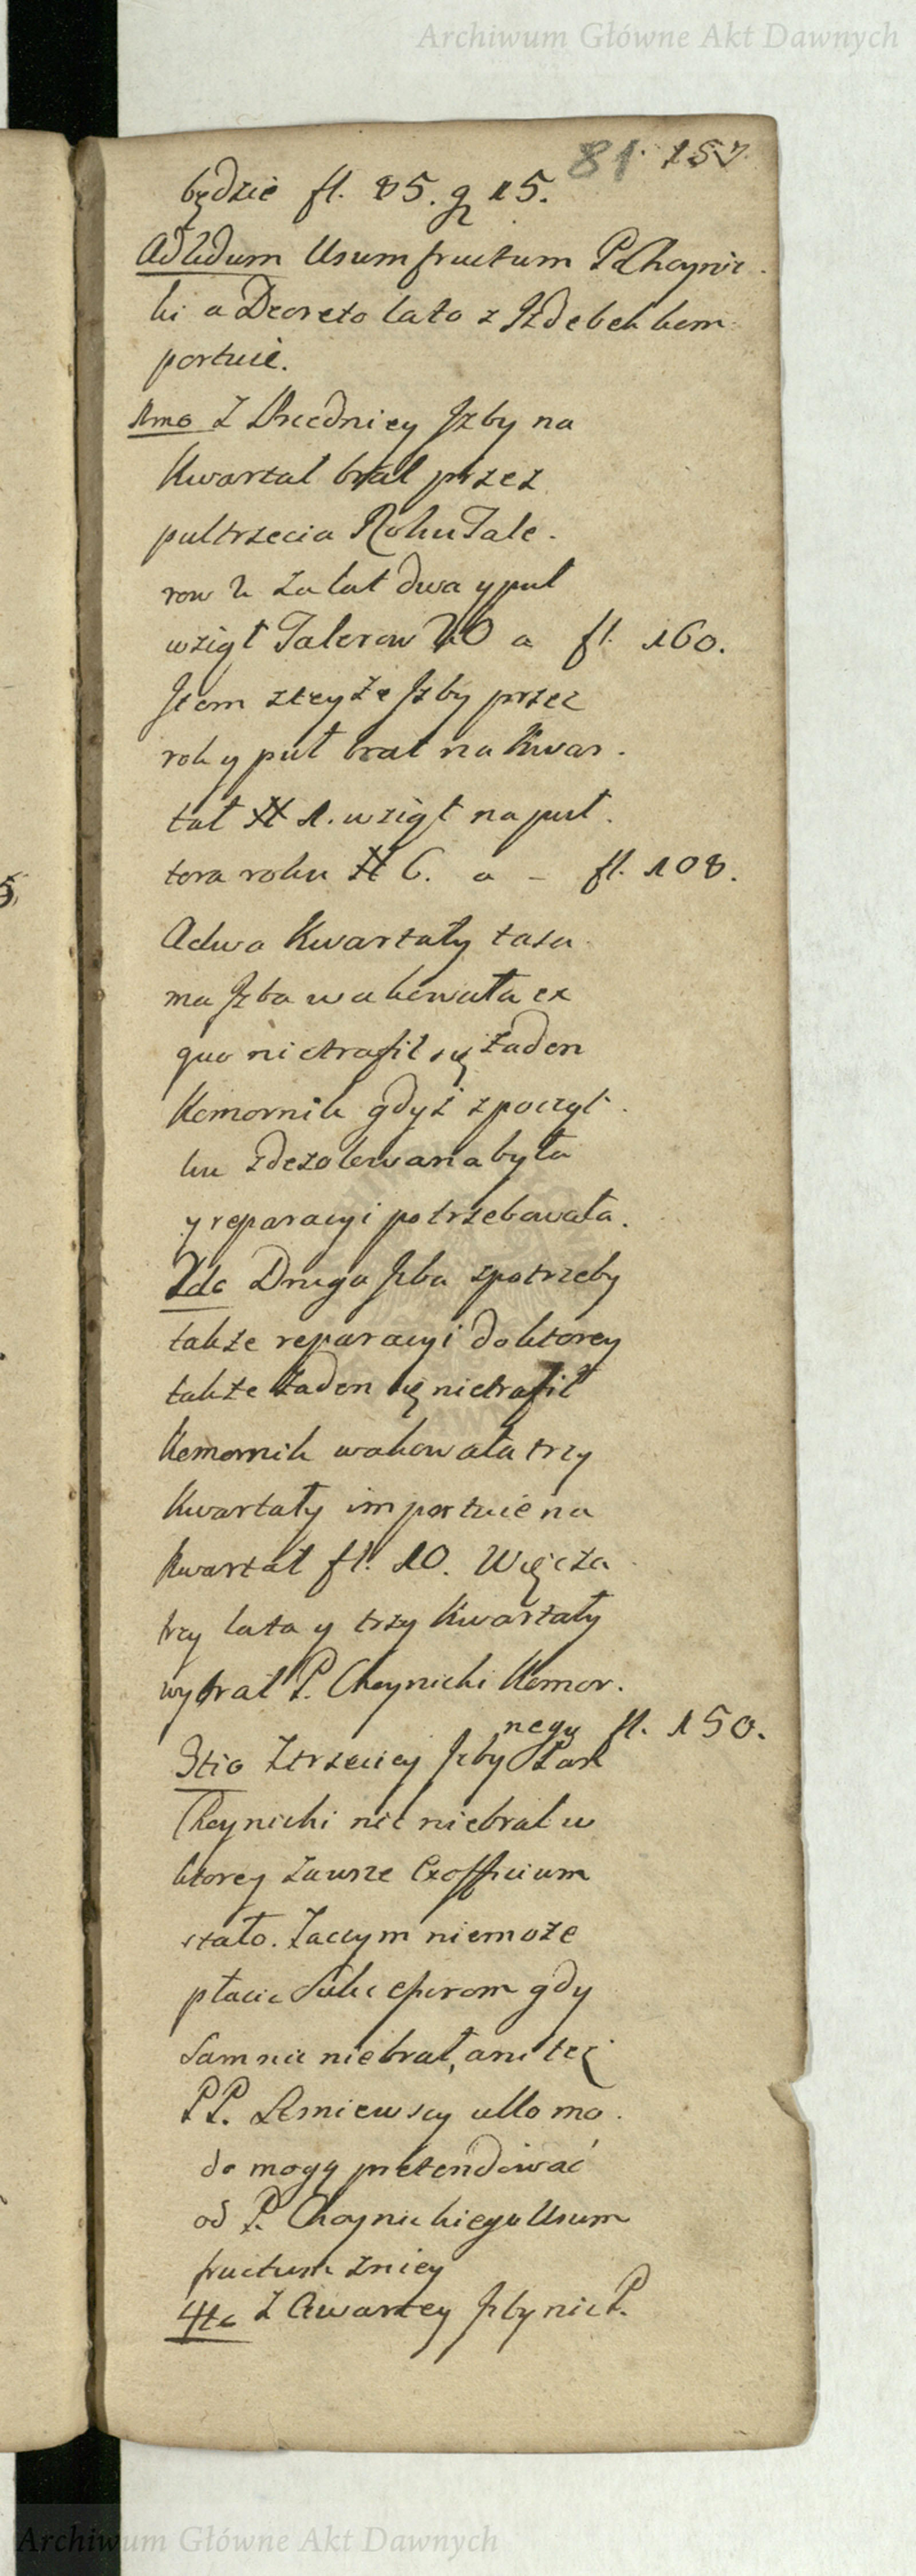 Archiwum Główne Akt Dawnych
81 157.
będzie fl. 85. g 15.
Ad 2dum Usumfructum P Choynic
ki a Decreto lato z Izdebek kom
portuie.
1mo Z Średniey Izby na
Kwartał brał przez
pułtrzecia Roku Tale.
row 2 za lat dwa y puł
wziął Talerow 20 a fl. 160.
Item z teyże Izby przez
rok y puł brał na Kwar.
tał # 1. wziął na puł.
tora roku # 6. a – fl. 108.
A dwa Kwartały tasa
ma Izba wakowała ex
quo nietrafił się żaden
Komornik gdyż z począt.
ku zdezolowana była
y reparacyi potrzebowała.
2do Druga Izba z potrzeby
także reparacyi do ktorey
także żaden się nietrafił
Komornik wakowała trzy
Kwartały importuie na
kwartał fl. 10. Więc za
trzy lata y trzy Kwartały
wybrał P. Choynicki Komor.
nego fl. 150.
3tio Z trzeciey Izby Pan
Choynicki nic niebrał w
ktorey zawsze Exofficium
stało. Zaczym niemoże
płacić Sukcessorom gdy
Sam nic niebrał, ani też
PP. Lśniewscy ullo mo.
do mogą pretendować
od P. Choynickiego Usum
fructum z niey
4to Z Czwartey Izby nic P.
Archiwum Główne Akt Dawnych